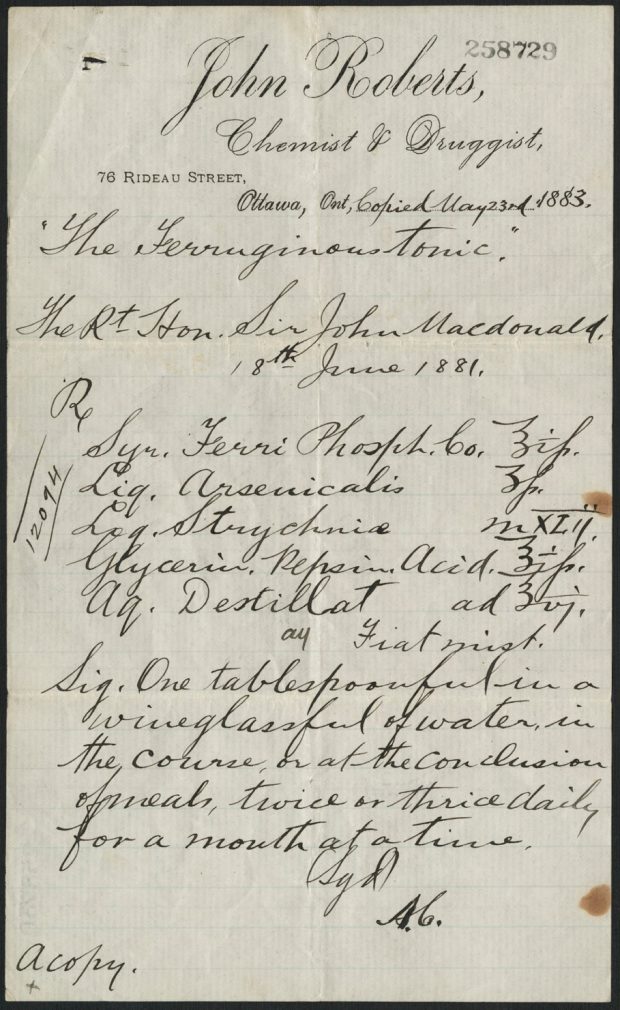 258729
John Roberts,
Chemist & Druggist,
76 Rideau Street,
Ottawa, Ont, Copied May 23rd 1883.
"The Ferruginous tonic."
The Rt Hon. Sir John Macdonald.
18th June 1881.
℞
12094
Syr. Ferri Phosph. Co. ℥iſs.
Liq. Arsenicalis ʒſs.
Liq. Strychniæ ♏ XLij.
Glycerin. Pepsin. Acid. ℥iſs.
Aq. Destillat ad ℥vj.
Fiat mist.
Sig. One tablespoonful in a
wineglassful of water, in
the course, or at the conclusion
of meals, twice or thrice daily
for a month at a time.
Sgd
A.C.
A copy.